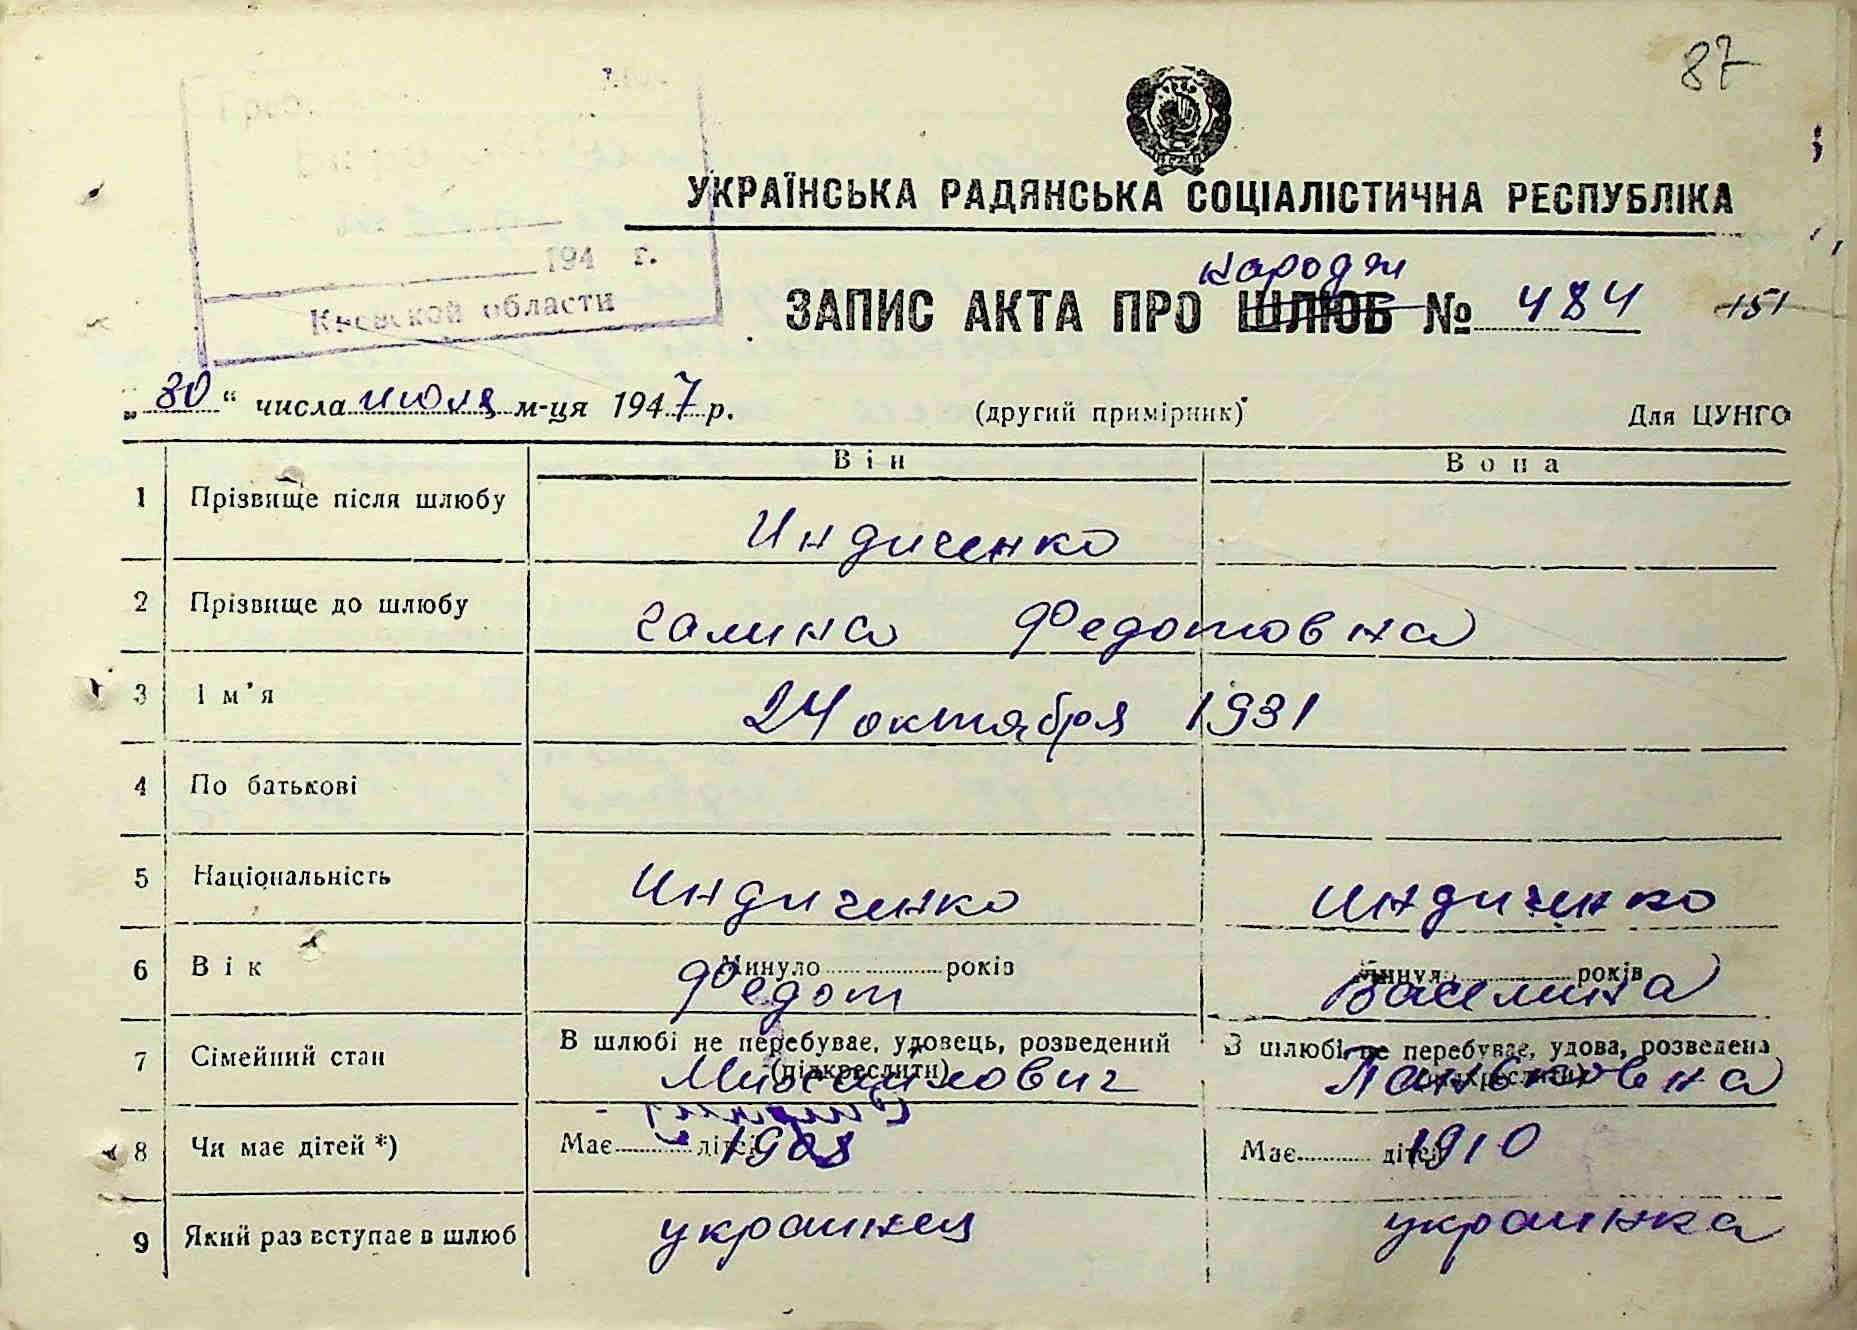 87
УКРАЇНСЬКА РАДЯНСЬКА СОЦІАЛІСТИЧНА РЕСПУБЛІКА
194 г.
Киевской области
народж
ЗАПИС АКТА ПРО ШЛЮБ № 484 151
„30“ числа июля м-ця 1947 р. (другий примірник) Для ЦУНГО
Він Вона
1 Прізвище після шлюбу Индиченко
2 Прізвище до шлюбу Галина Федотовна
3 Ім'я 24 октября 1931
4 По батькові
5 Національність Индиченко Индиченко
6 Вік Минуло років Минуло років
Федот Василина
7 Сімейний стан В шлюбі не перебуває, удовець, розведений В шлюбі не перебуває, удова, розведена
(підкреслити) (підкреслити)
Михайлович
8 Чи має дітей *) Має дітей 1908 Має дітей 1910
9 Який раз вступає в шлюб украинец украинка